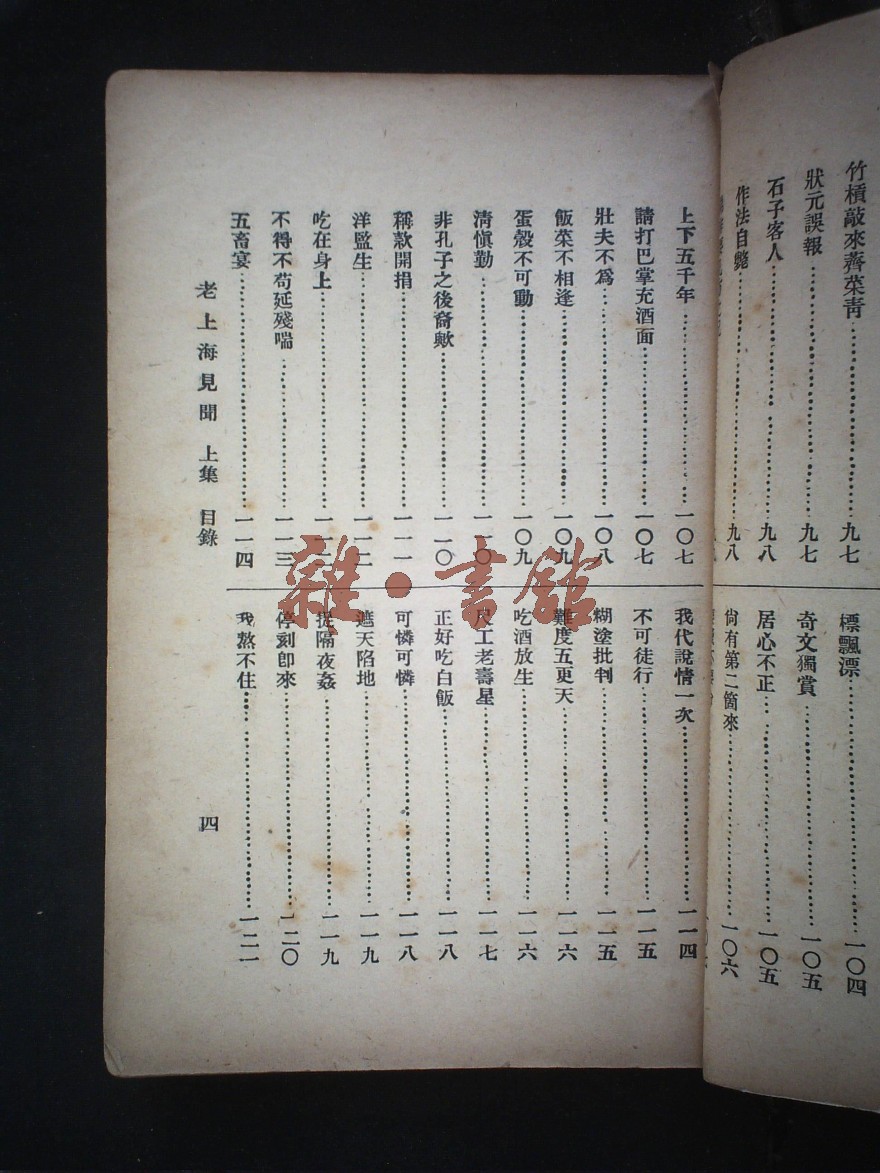 竹槓敲來薺菜靑……九七
狀元誤報……九七
石子客人……九八
作法自斃……九八
標飄漂……一〇四
奇文獨賞……一〇五
居心不正……一〇五
尙有第二箇來……一〇六
上下五千年……一〇七
請打巴掌充酒面……一〇七
壯夫不爲……一〇八
飯菜不相逢……一〇九
蛋殼不可動……一〇九
淸愼勤……一一〇
非孔子之後裔歟……一一〇
稱款開捐……一一一
洋監生……一一二
吃在身上……一一二
不得不苟延殘喘……一一三
五畜宴……一一四
我代說情一次……一一四
不可徒行……一一五
糊塗批判……一一五
難度五更天……一一六
吃酒放生……一一六
尺工老壽星……一一七
正好吃白飯……一一八
可憐可憐……一一八
遮天陷地……一一九
捉隔夜姦……一一九
停刻卽來……一二〇
我熬不住……一二一
老上海見聞 上集 目錄
四
雜·書館